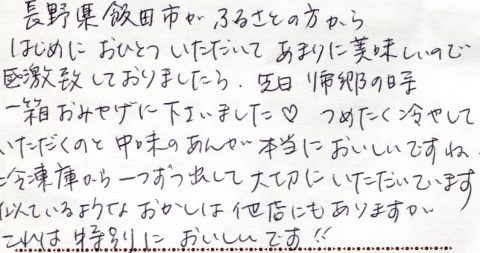 長野県飯田市がふるさとの方から
はじめに おひとついただいて あまりに美味しいので
感激致しておりましたら、先日 帰郷の時
一箱おみやげに下さいました♡ つめたく冷やして
いただくのと 中味のあんが本当においしいですね、
冷凍庫から一つずつ出して大切にいただいています
似ているようなおかしは他店にもありますが
これは特別においしいです!!